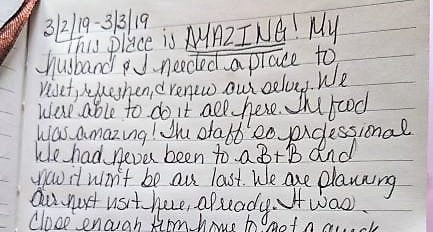 3/2/19-3/3/19
This place is AMAZING! My
husband & I needed a place to
reset, refreshen, & renew our selves. We
were able to do it all here. The food
was amazing! The staff so professional
We had never been to a B+B and
now it won't be our last. We are planning
our next visit here, already. It was
close enough from home to get a quick